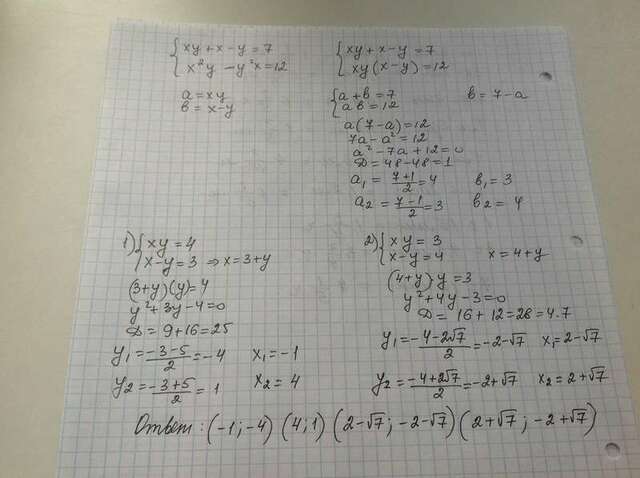 {xy + x - y = 7
x²y - y²x = 12
a = xy
b = x - y
{xy + x - y = 7
xy(x - y) = 12
{a + b = 7 b = 7 - a
ab = 12
a(7 - a) = 12
7a - a² = 12
a² - 7a + 12 = 0
D = 48 - 48 = 1
a₁ = (7+1)/2 = 4 b₁ = 3
a₂ = (7-1)/2 = 3 b₂ = 4
1) {xy = 4
x - y = 3 ⇒ x = 3 + y
(3+y)(y) = 4
y² + 3y - 4 = 0
D = 9 + 16 = 25
y₁ = (-3-5)/2 = -4 x₁ = -1
y₂ = (-3+5)/2 = 1 x₂ = 4
2) {xy = 3
x - y = 4 x = 4 + y
(4+y)·y = 3
y² + 4y - 3 = 0
D = 16 + 12 = 28 = 4·7
y₁ = (-4-2√7)/2 = -2-√7 x₁ = 2-√7
y₂ = (-4+2√7)/2 = -2+√7 x₂ = 2+√7
Ответ: (-1; -4) (4; 1) (2-√7; -2-√7) (2+√7; -2+√7)